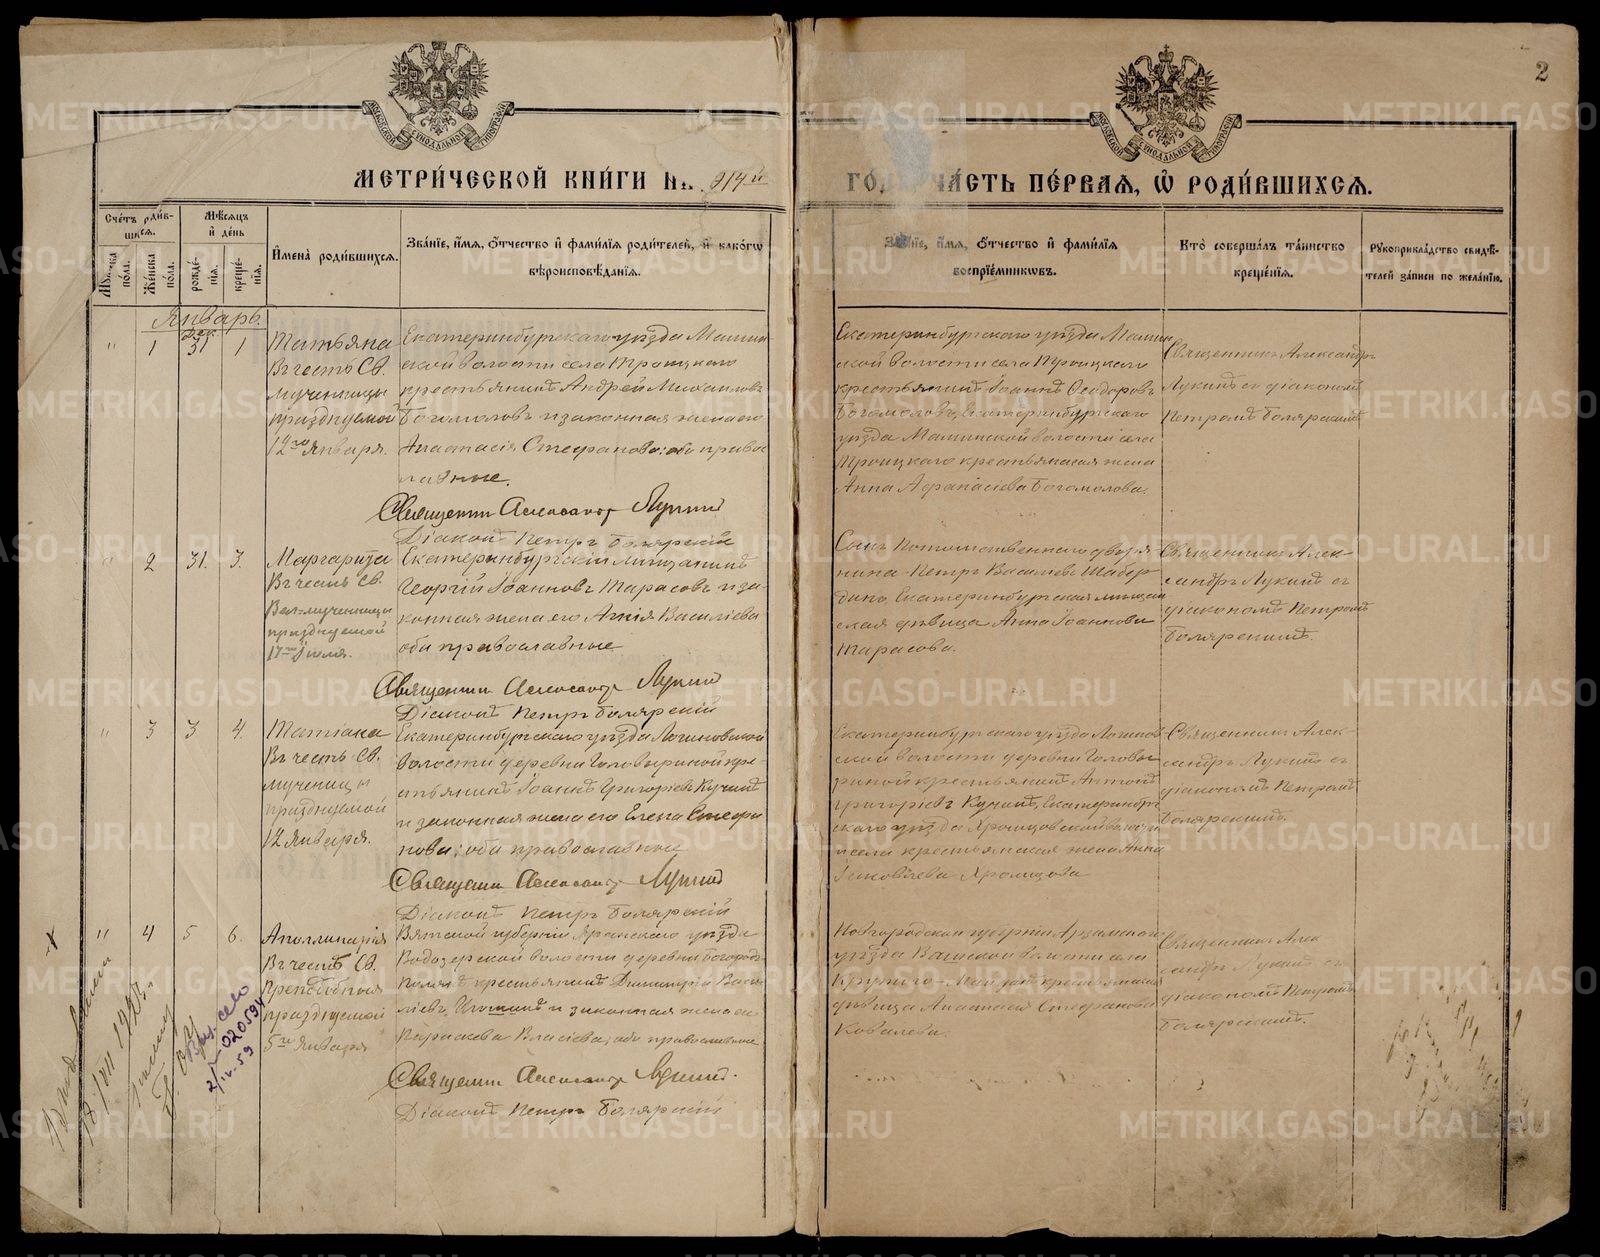 2
МОСКОВСКОЙ СѴНОДАЛЬНОЙ ТИПОГРАФІИ
МОСКОВСКОЙ СѴНОДАЛЬНОЙ ТИПОГРАФІИ
МЕТРИ́ЧЕСКОЙ КНИ́ГИ НА 914й
ГО́ДЪ ЧА́СТЬ ПЕ́РВАЯ, Ѡ РОДИ́ВШИХСЯ.
Сче́тъ роди́в-
шихся.
Мѣ́сяцъ
и҆ де́нь
Му́жеска по́ла.
Же́нска по́ла.
рожде́нія.
креще́нія.
И҆мена̀ роди́вшихся.
Зва́нїе, и҆́мя, ѻ҆́тчество и҆ фами́лїя роди́телей, и҆ како́гѡ
вѣроисповѣ́данїя.
Зва́нїе, и҆́мя, ѻ҆́тчество и҆ фами́лїя
воспрїе́мниковъ.
Кто̀ соверша́лъ та́инство
креще́нїя.
Рукоприкла́дство свидѣ́-
телей за́писи по жела́нїю.
Январь.
Дек.
" 1 31 1
Татьяна
Въ честь Св.
мученицы
празднуемой
12го Января.
Екатеринбургскаго уѣзда Мамин
ской волости села Троицкаго
крестьянинъ Андрей Михаиловъ
Богомоловъ и законная жена его
Анастасія Стефанова: оба правос
лавные.
Священник Александр Лукин
Діаконъ Петръ Боярскій
Екатеринбургскаго уѣзда Мамин
ской волости села Троицкаго
крестьянинъ Іоаннъ Ѳеодоровъ
Богомоловъ, Екатеринбургскаго
уѣзда Маминской волости села
Троицкаго крестьянская жена
Анна Афанасіева Богомолова.
Священникъ Александръ
Лукинъ съ діакономъ
Петромъ Боярскимъ
" 2 31. 3.
Маргарита
Въ честь Св.
Вел-мученицы
празднуемой
17го Іюля.
Екатеринбургскій мѣщанинъ
Георгій Іоанновъ Тарасовъ и за
конная жена его Агнія Василіева
оба православные
Священник Александр Лукин
Діаконъ Петръ Боярскій
Сынъ Потомственнаго дворя
нина Петръ Василіевъ
Екатеринбургская мѣщан
ская дѣвица Анна Іоаннова
Тарасова.
Священникъ Алек-
сандръ Лукинъ съ
діакономъ Петромъ
Боярскимъ.
" 3 3 4.
Татіана
Въ честь Св.
мученицы
празднуемой
12 Января.
Екатеринбургскаго уѣзда Логиновской
волости деревни Головыриной кре-
стьянинъ Іоаннъ Григоріевъ Кучинъ
и законная жена его Елена Стефа
нова; оба православные
Священник Александр Лукин
Діаконъ Петръ Боярскій
Екатеринбургскаго уѣзда Логинов
ской волости деревни Головы
риной крестьянинъ Антонъ
Григоріевъ Кучинъ, Екатеринбург
скаго уѣзда Хромцовской волости
и села крестьянская жена Анна
Іаковлева Хромцова
Священникъ Алек-
сандръ Лукинъ съ
діакономъ Петромъ
Боярскимъ.
" 4 5 6.
Аполлинарія
Въ честь Св.
Преподобныя
празднуемой
5го Января
Вятской губерніи Яранскаго уѣзда
Водозерской волости деревни
крестьянинъ Димитрій Васи
ліевъ и законная жена его
Параскева Власіева; оба православные
Священник Александр Лукин.
Діаконъ Петръ Боярскій
уѣзда волости села
Крутого Майдана крестьянская
дѣвица Анастасія Стефанова
Ковалева.
Священникъ Алек
сандръ Лукинъ съ
діакономъ Петромъ
Боярскимъ.
020594
2/IV.59